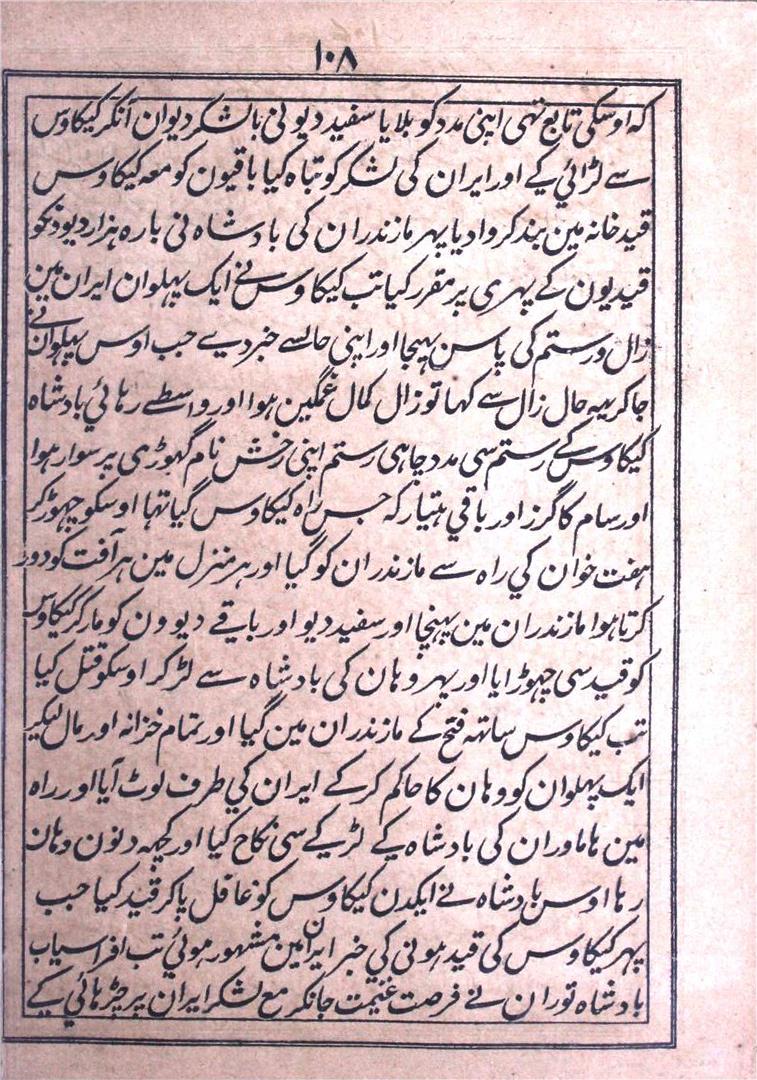 ۱۰۸
کہ اوسکی تابع تہی اپنی مدد کو بلایا سفید دیو نی بالشکر دیوان آنکر کیکاوس
سے لڑائي کے اور ایران کی لشکر کو تباہ کیا باقیون کو معہ کیکاوس
قید خانہ مین بند کروادیا پہر مازندران کی بادشاہ نی بارہ ہزار دیوونکو
قیدیون کے پہری پر مقرر کیا تب کیکاوس نے ایک پہلوان ایران مین
زال و رستم کی پاس بہیجا اور اپنی حالسے خبر دیے جب اوس پہلوان نے
جاکر یہ حال زال سے کہا تو زال کمال غمگین ہوا اور واسطے رہائي بادشاہ
کیکاوس کے رستم سی مدد چاہی رستم اپنی رخش نام گہوڑی پر سوار ہوا
اور سام کا گرز اور باقي ہتیار کہ جس راہ کیکاوس گیا تہا اوسکو چہوڑ کر
ہفت خوان کي راہ سے مازندران کو گیا اور ہر منزل مین ہر آفت کو دور
کرتا ہوا مازندران مین پہنچا اور سفید دیو اور باقے دیوون کو مار کر کیکاوس
کو قید سی چہوڑایا اور پہر وہان کی بادشاہ سے لڑ کر اوسکو قتل کیا
تب کیکاوس ساتہہ فتح کے مازندران مین گیا اور تمام خزانہ اور مال لیکر
ایک پہلوان کو وہان کا حاکم کر کے ایران کي طرف لوٹ آیا اور راہ
مین ہاماوران کی بادشاہ کے لڑکے سی نکاح کیا اور کچہہ دنون وہان
رہا اوس بادشاہ نے ایکدن کیکاوس کو غافل پاکر قید کیا جب
پہر کیکاوس کی قید ہونی کي خبر ایران مین مشہور ہوئي تب افراسیاب
بادشاہ توران نے فرصت غنیمت جانکر مع لشکر ایران پر چڑہائي کے